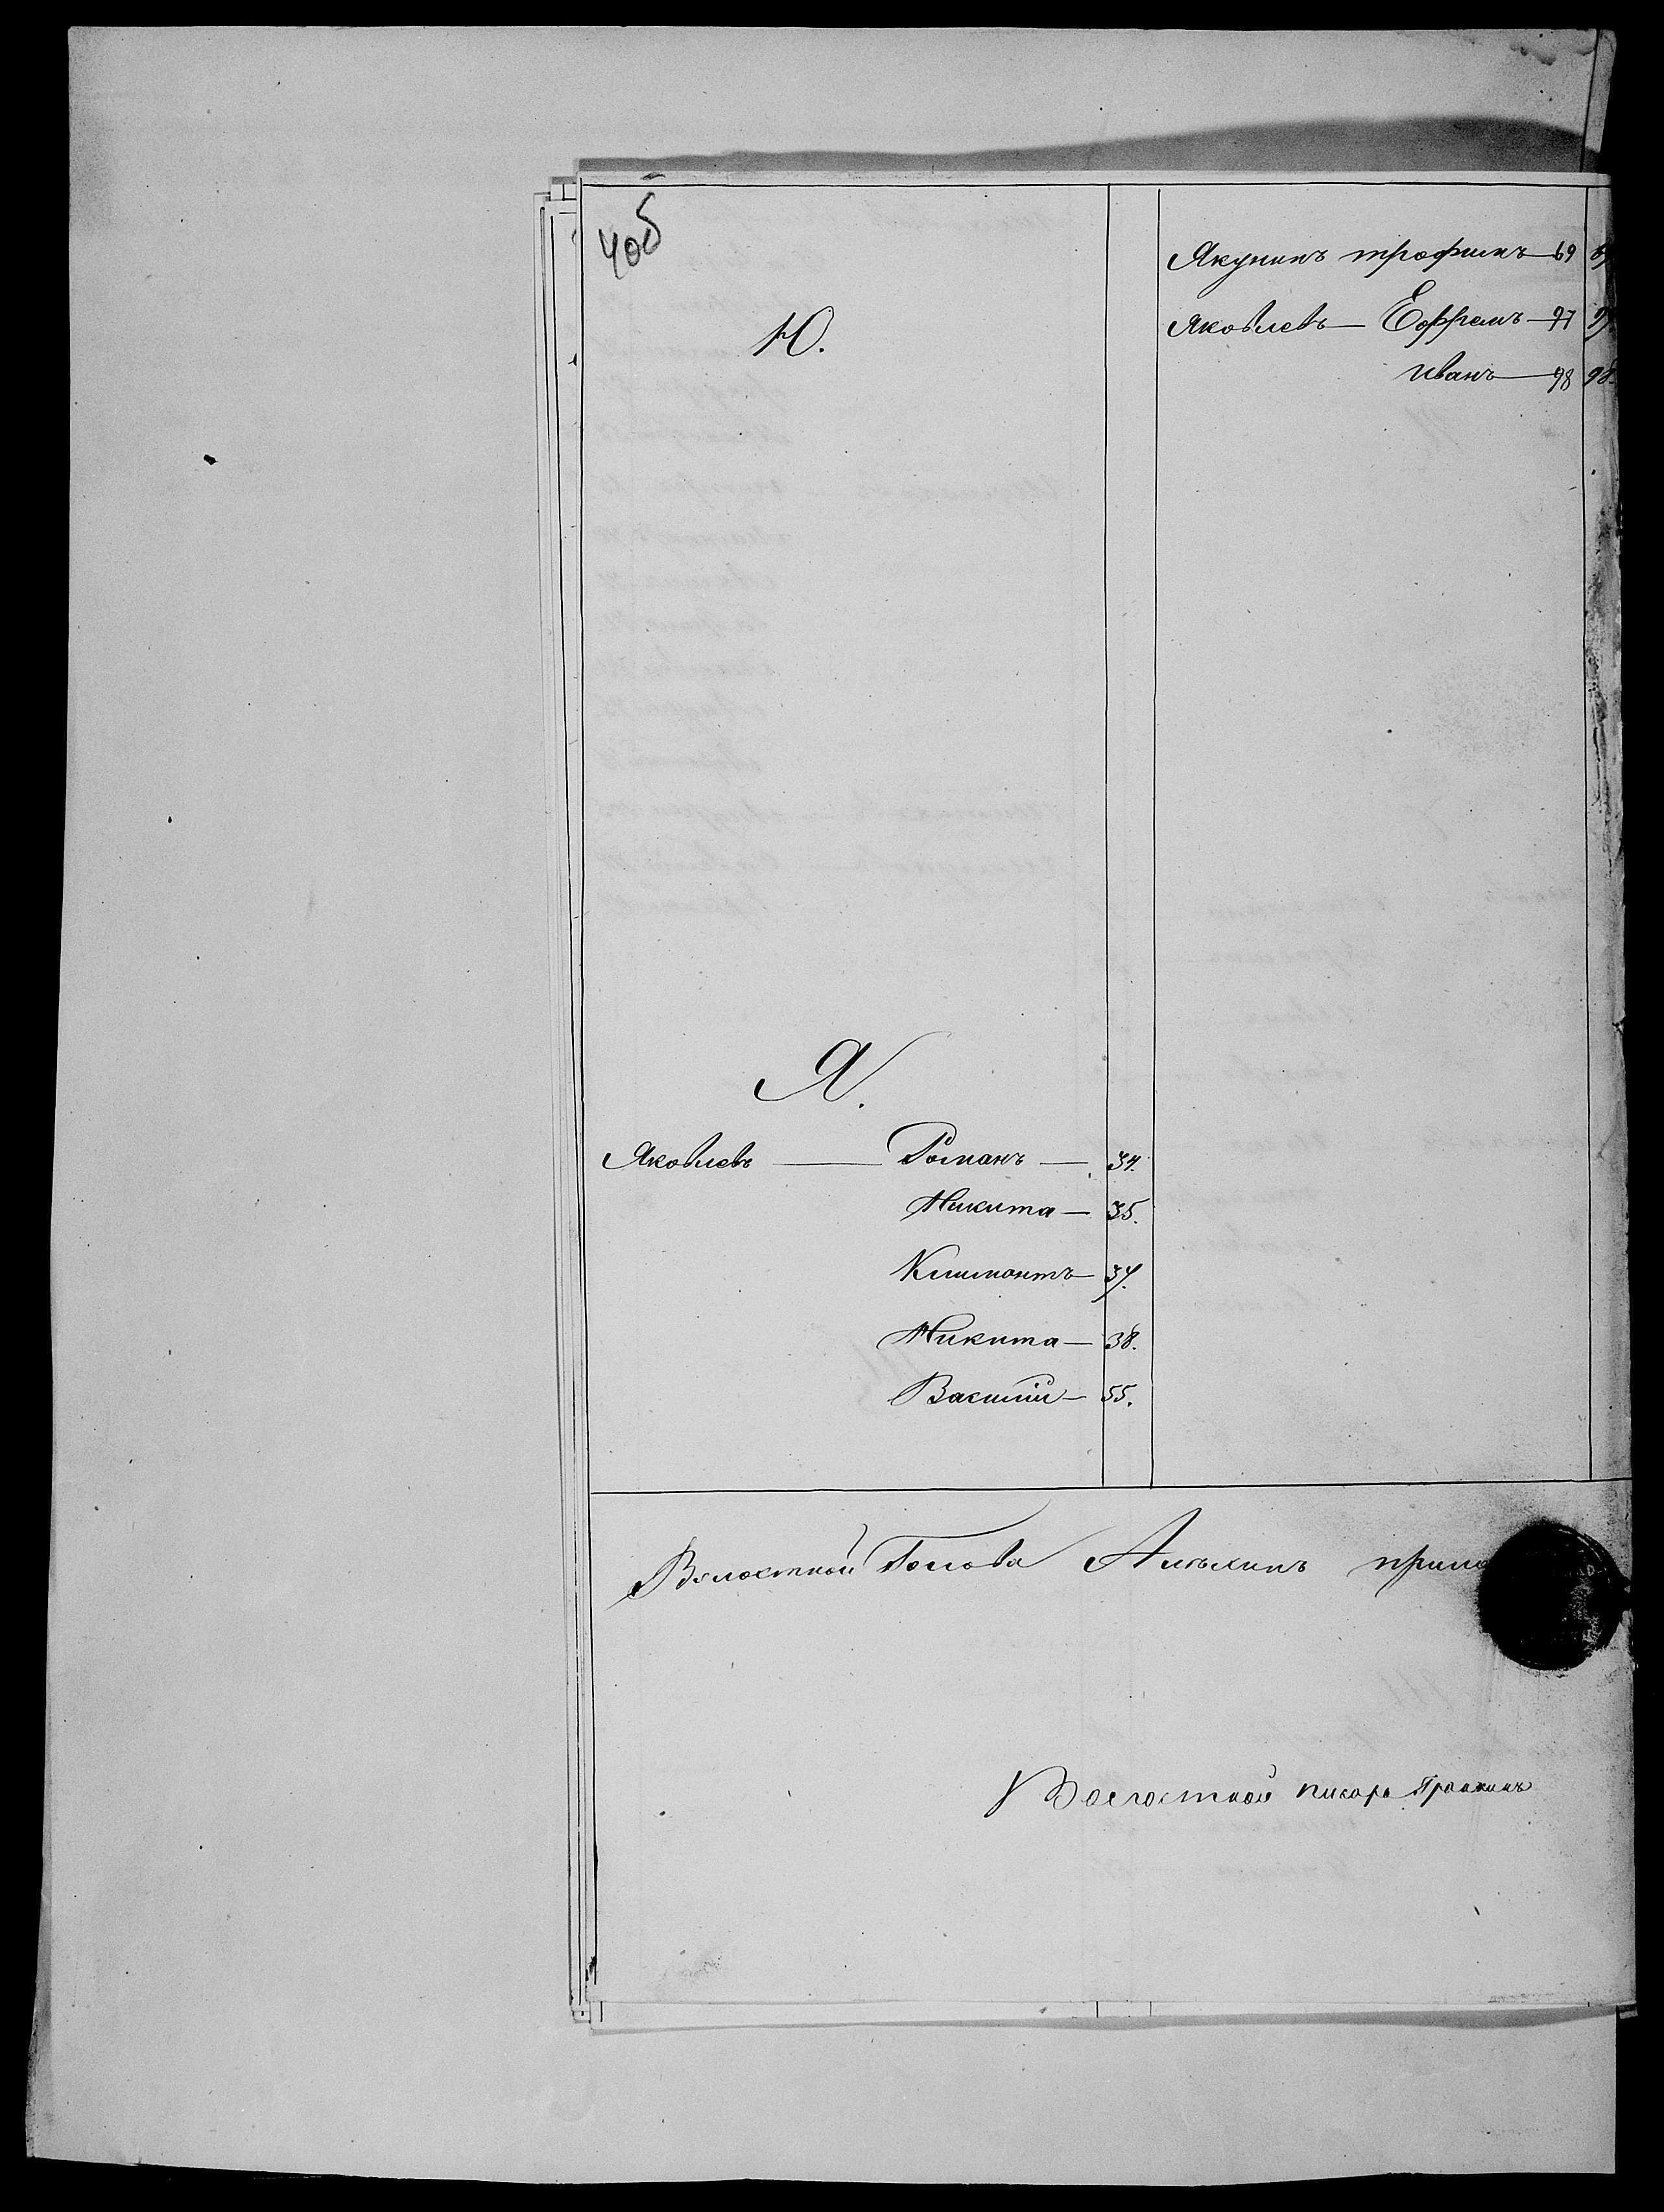 406
Ю.
Я.
Яковлевъ — Романъ — 34.
Никита — 35.
Климонтъ — 37.
Никита — 38.
Василий — 55.
Якунинъ трофимъ — 69 69
Яковлевъ — Ефремъ — 97 97
иванъ — 98 98.
Волостной Голова Алѣхинъ прило
Волостной писарь